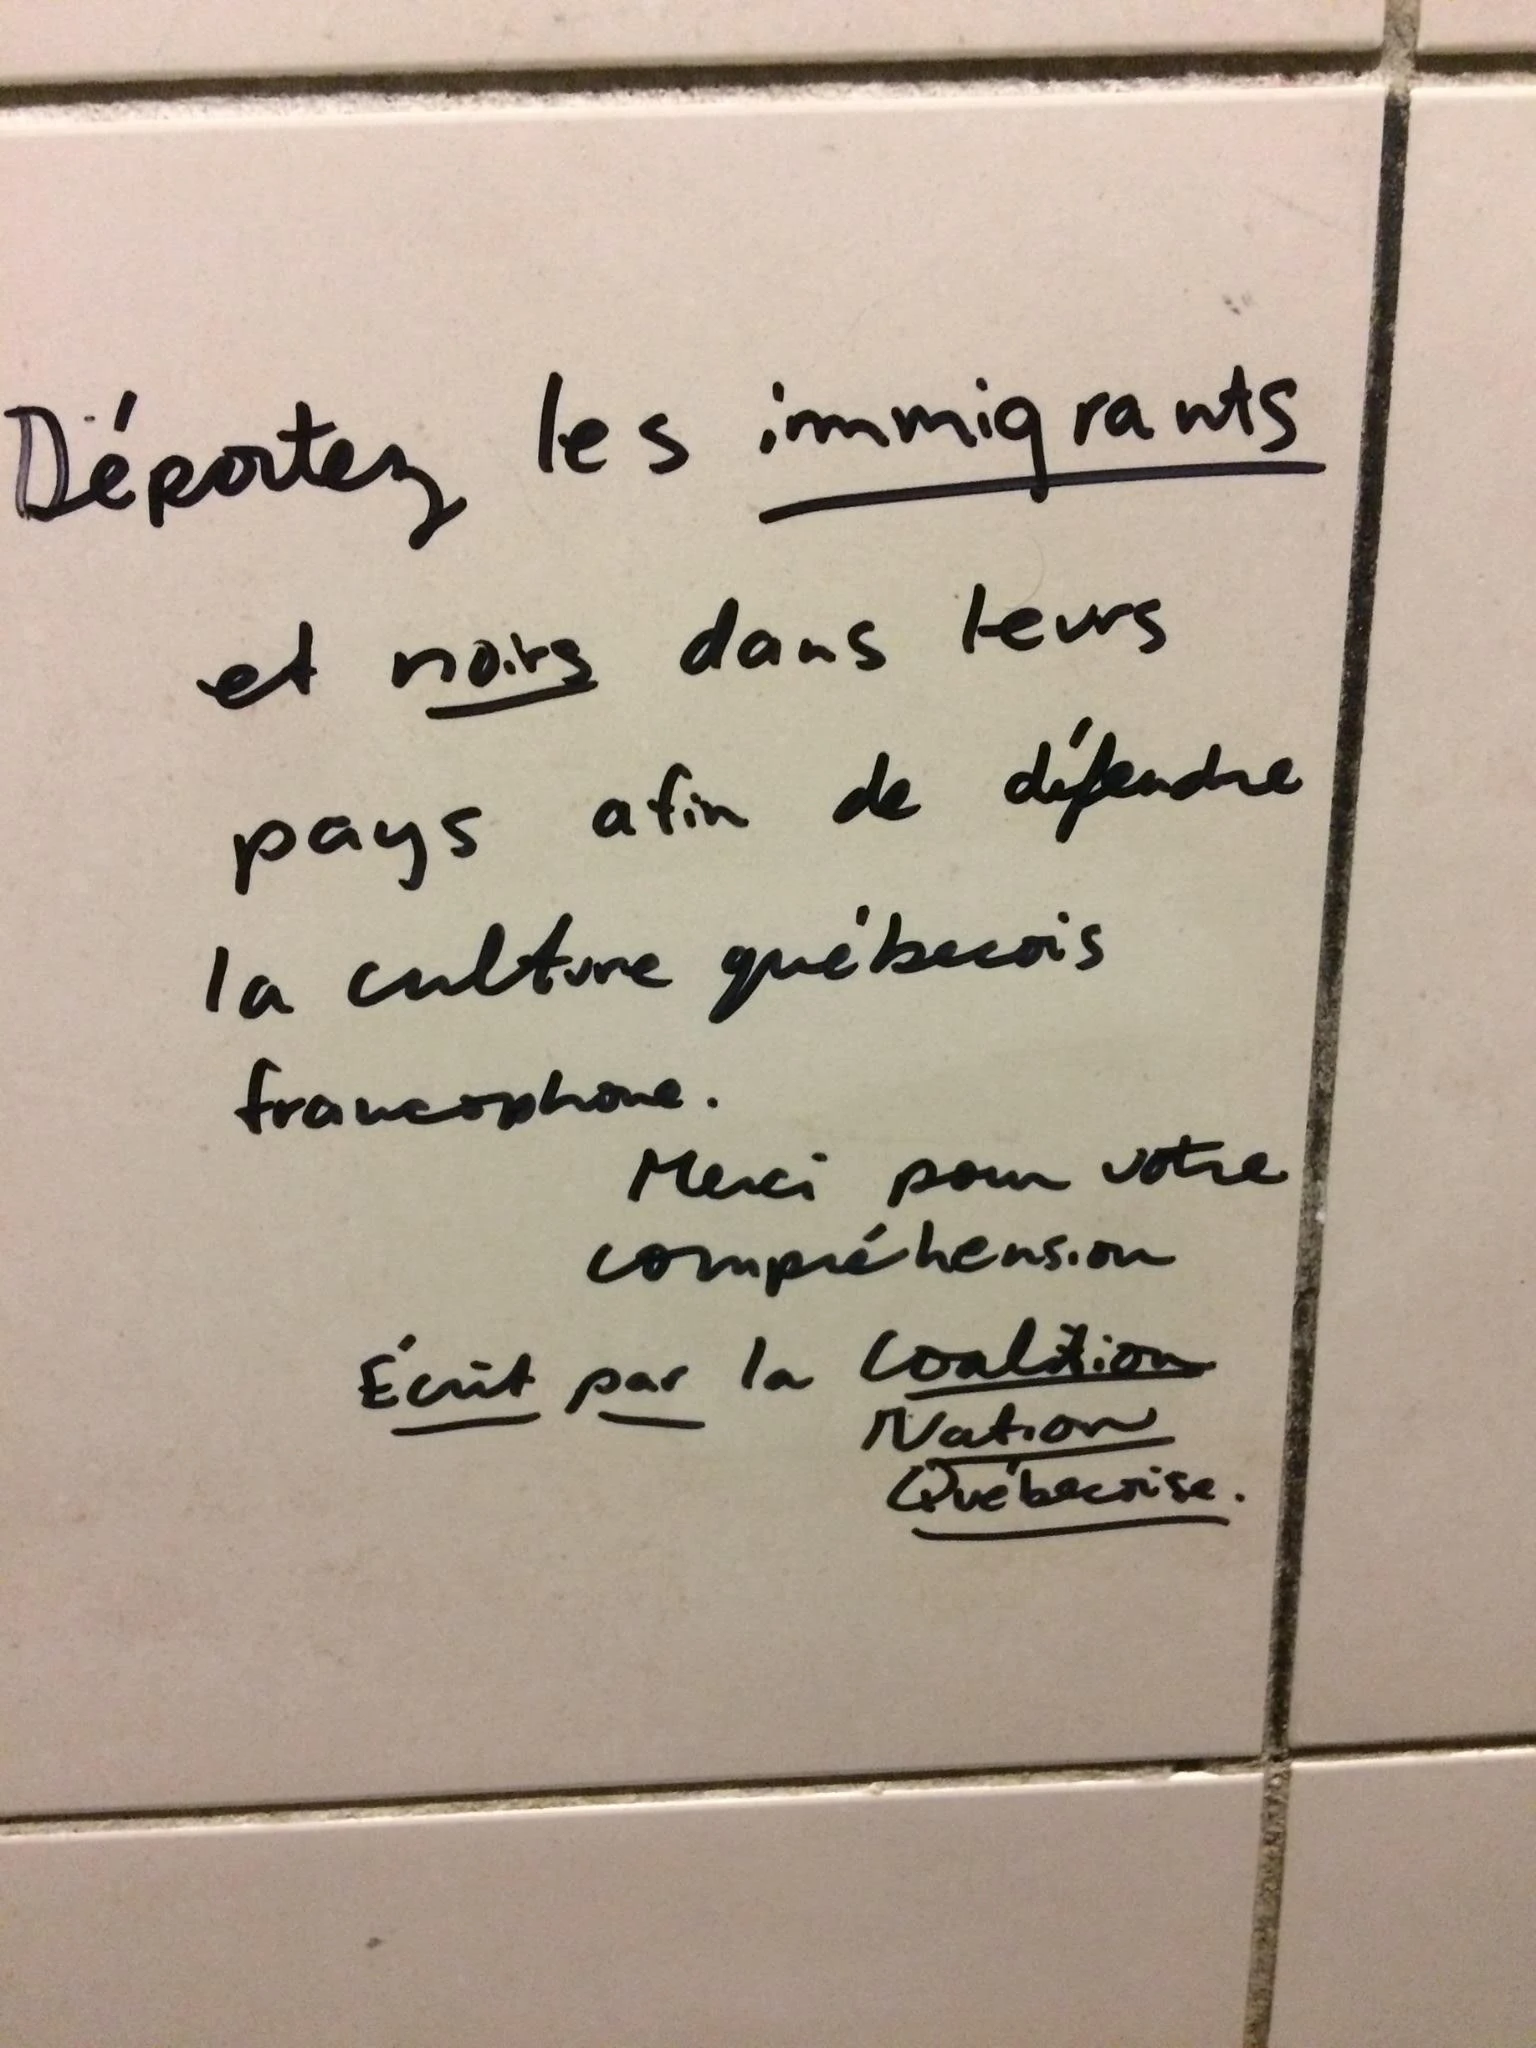 Déportez les immigrants
et noirs dans leurs
pays afin de défendre
la culture québecois
francophone.
Merci pour votre
compréhension
Écrit par la Coalition
Nation
Québecoise.